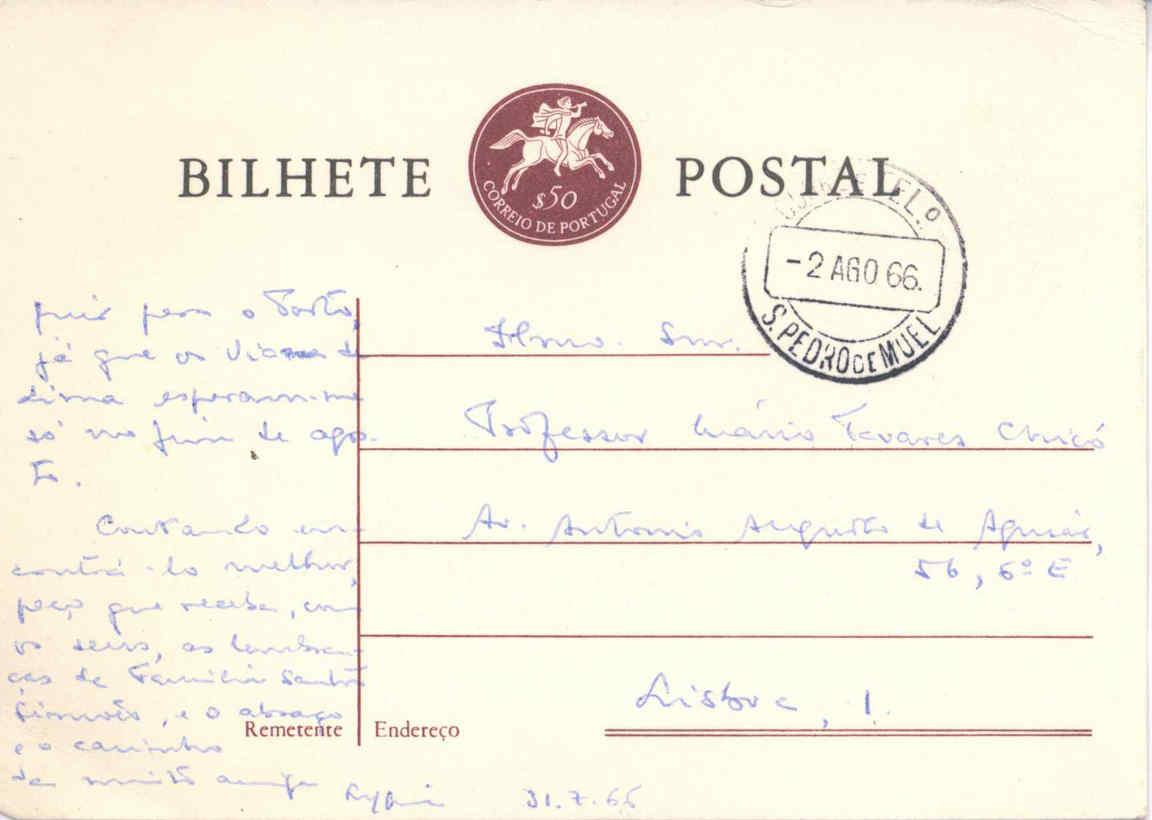 BILHETE POSTAL
$50
CORREIO DE PORTUGAL
-2 AGO 66.
S. PEDRO DE MUEL
para o Porto,
já que os Viana de
Lima esperam-me
só no fim de ago-
to.
Contando en-
contrá-lo melhor,
peço que receba, com
os seus, as lembran-
ças da Família Santos
Simões, e o abraço
e o carinho
da muito amiga
31.7.66
Ilmo. Snr.
Professor Mário Tavares Chicó
Av. Antonio Augusto de Aguiar,
56, 6º E
Lisboa, 1.
Remetente
Endereço